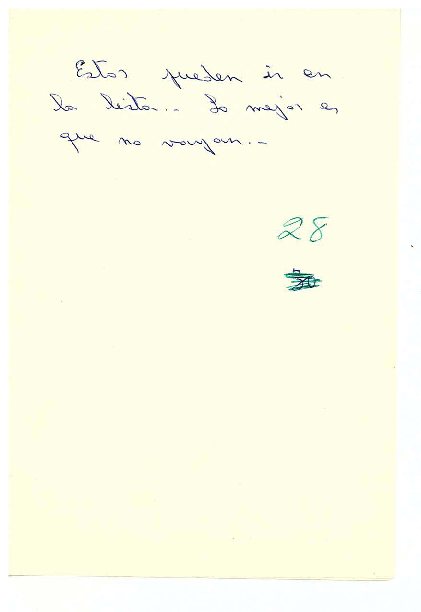 Estos pueden ir en
la lista.. Lo mejor es
que no vayan..
28